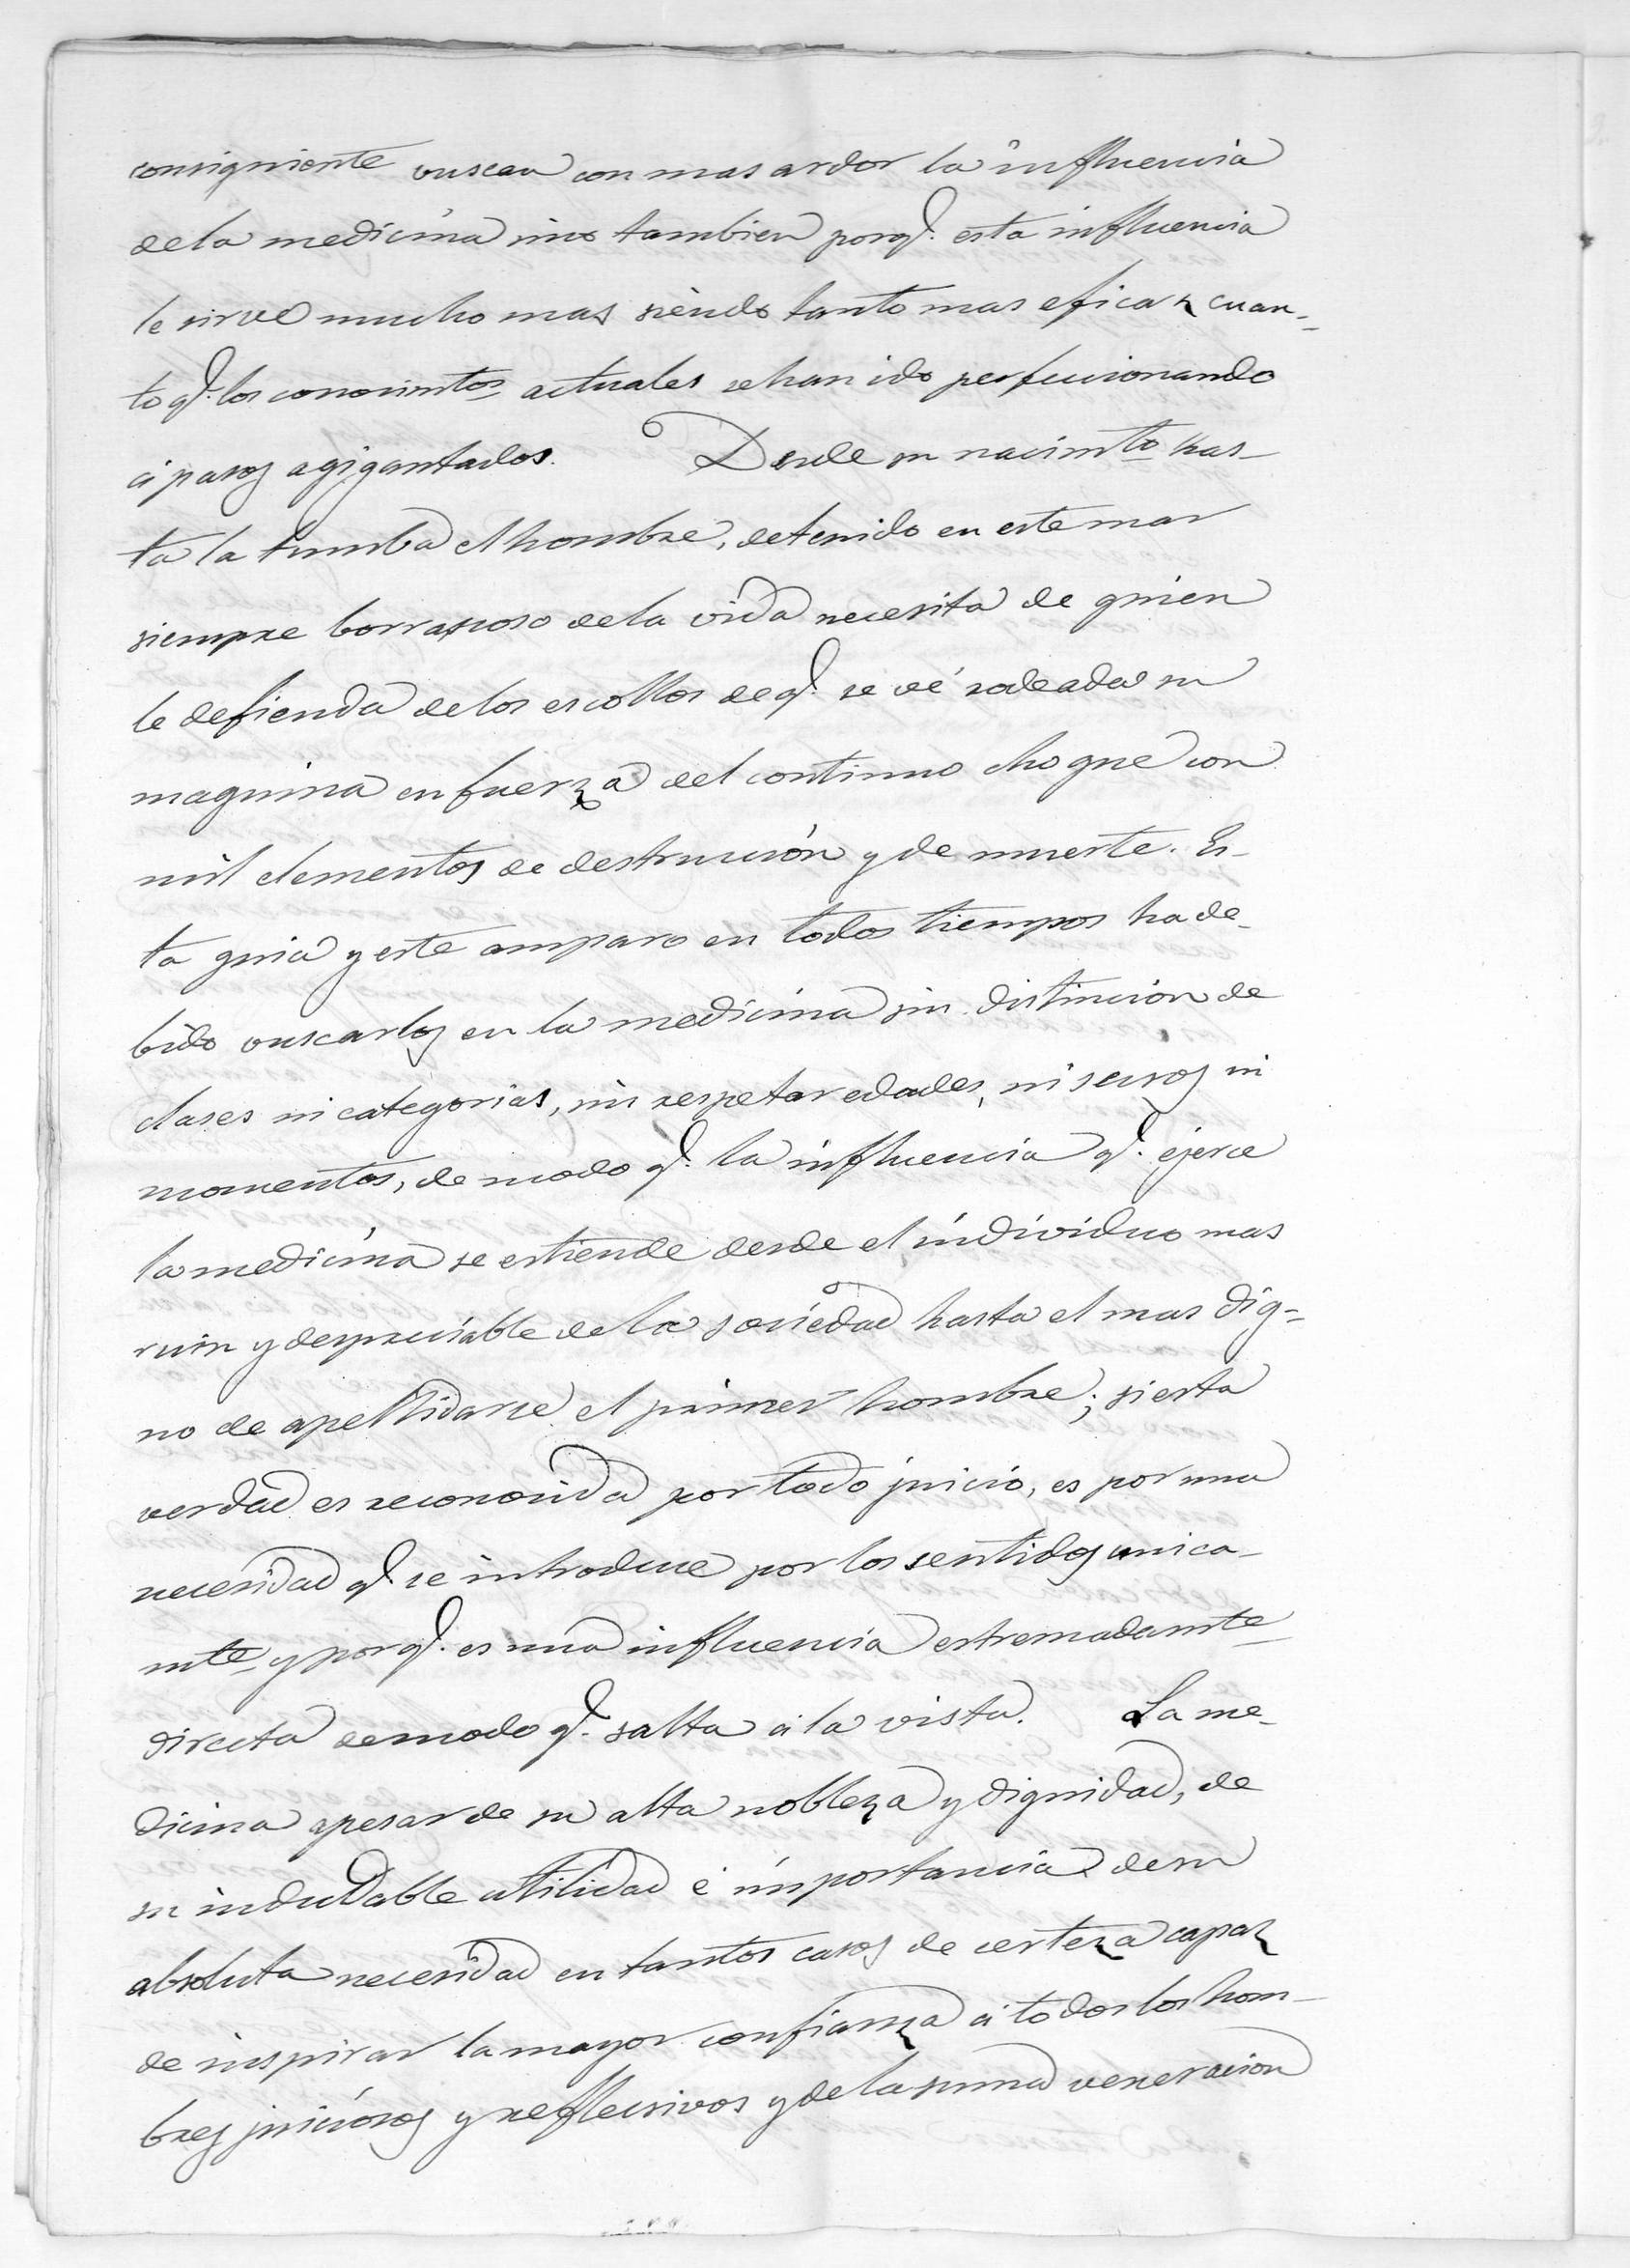 consigniente vuscan con mas ardor la influencia
dela medicina sino tambien porq.̃ esta influencia
le sirve mucho mas siendo tanto mas eficaz cuan-
to q.̃ los conocimtos actuales sehan ido perfeccionando
á pasos agigantados. Desde su nacimto has-
ta la tumba el hombre, detenido en este mar
siempre borrascoso dela vida necesita de quien
le defienda delos escollos deq.̃ se vé rodeada su
maquina en fuerza del continuo choque con
mil elementos de destrucción y de muerte. Es-
ta guia y este amparo en todos tiempos ha de-
bido vuscarlos en la medicina sin distincion de
clases ni categorias, sin respetar edades, ni secsos ni
momentos, de modo q.̃ la influencia q.̃ ejerce
la medicina se estiende desde el individuo mas
ruin y despreciable dela sociedad hasta el mas dig-
no de apellidarse el primer hombre; si esta
verdad es reconocida por todo juicio, es por una
necesidad q.̃ se introduce por los sentidos unica-
mte y porq.̃ es una influencia estremadamte
directa demodo q.̃ salta á la vista. La me-
dicina apesar de su alta nobleza y dignidad, de
su indudable utilidad é importancia desu
absoluta necesidad en tantos casos de certeza capaz
de inspirar la mayor confianza á todos los hom-
bres juiciosos y reflecsivos y dela suma veneracion